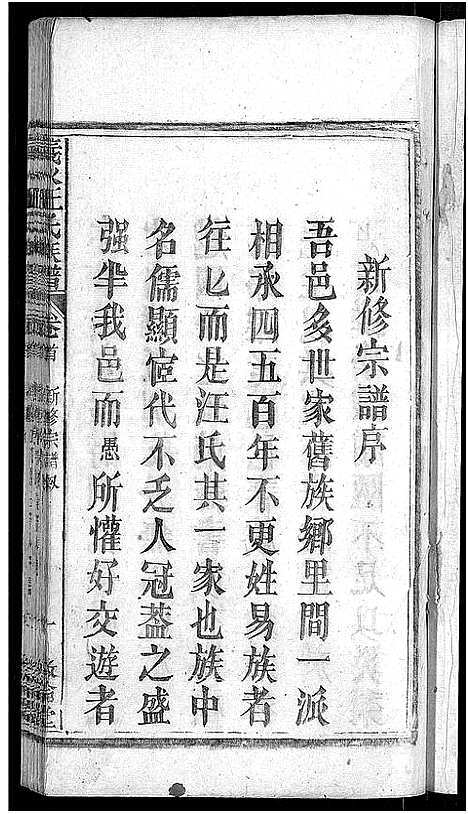 新修宗譜序
吾邑多世家舊族鄉里間一派
相承四五百年不更姓易族者
往匕而是汪氏其一家也族中
名儒顯宦代不乏人冠葢之盛
强半我邑而愚所懽好交遊者
氏族譜
卷首
新修宗譜